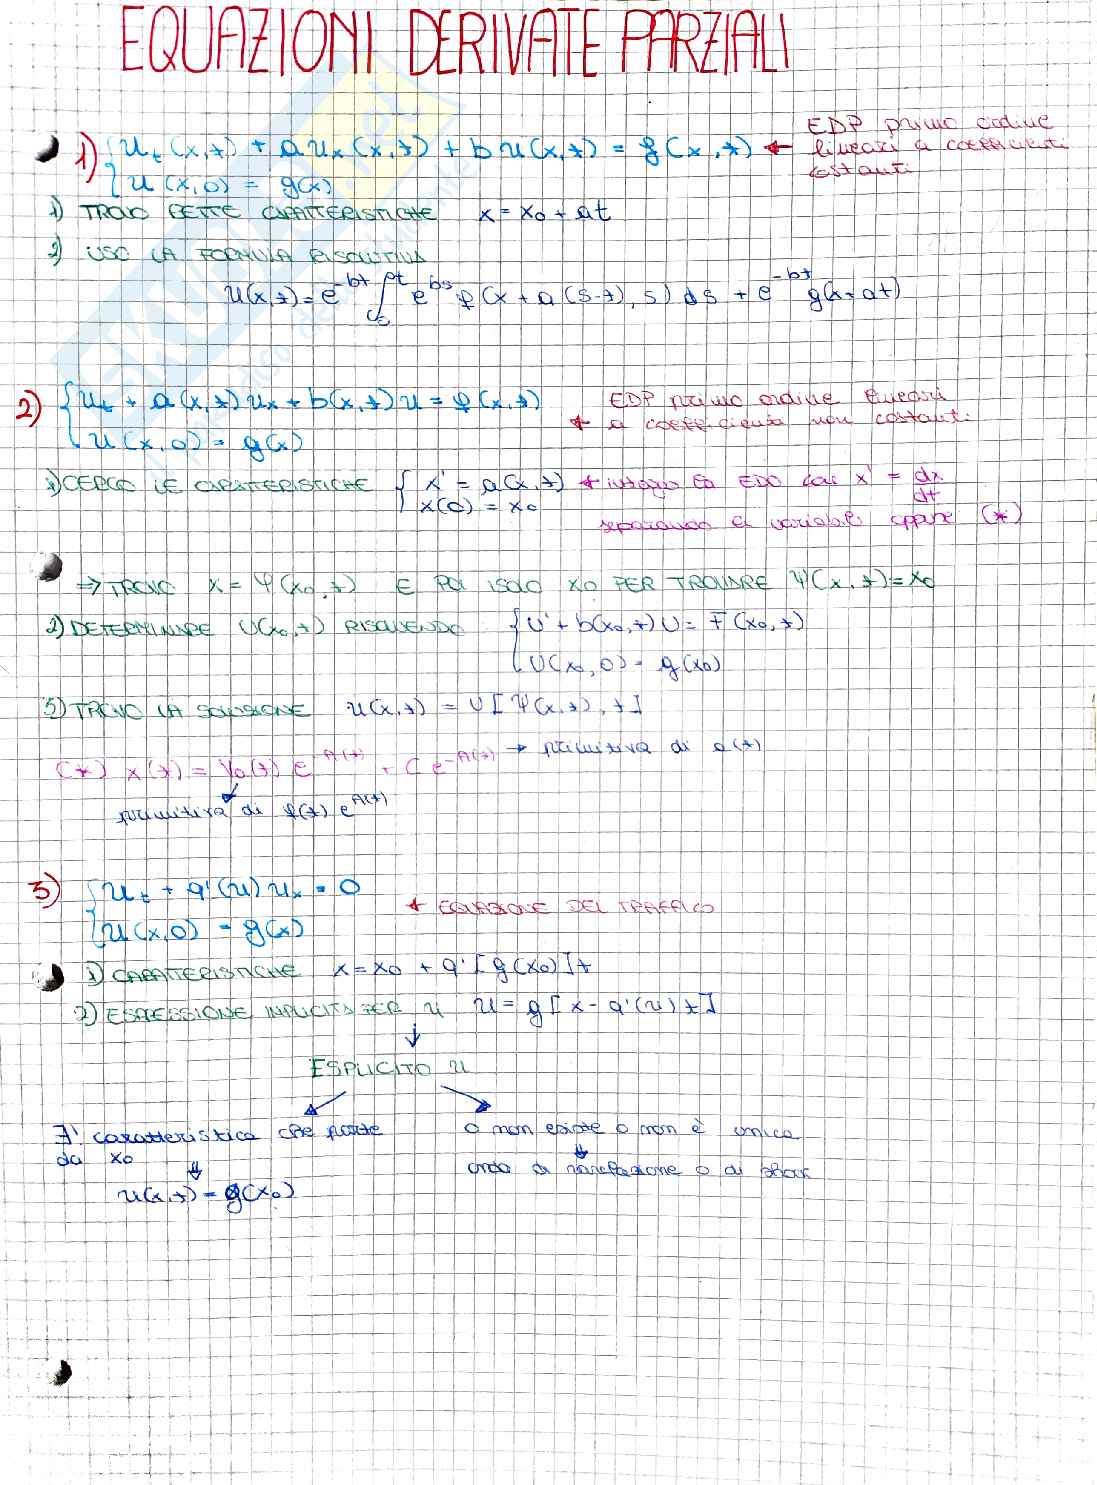 EQUAZIONI DERIVATE PARZIALI
1) { u_t(x,t) + a u_x(x,t) + b u(x,t) = f(x,t) ← EDP primo ordine lineari a coefficienti costanti
u(x,0) = g(x)
1) TROVO RETTE CARATTERISTICHE x = x₀ + at
2) USO LA FORMULA RISOLUTIVA
u(x,t) = e^{-bt} ∫₀^t e^{bs} f(x + a(s-t), s) ds + e^{-bt} g(x-at)
2) { u_t + a(x,t) u_x + b(x,t) u = f(x,t) ← EDP primo ordine lineari a coefficienti non costanti
u(x,0) = g(x)
1) CERCO LE CARATTERISTICHE { x' = a(x,t) ← integro la EDO con x' = dx/dt
x(0) = x₀ separando le variabili oppure (*)
⇒ TROVO x = Ψ(x₀,t) E POI ISOLO x₀ PER TROVARE Ψ(x,t) = x₀
2) DETERMINARE U(x₀,t) RISOLVENDO { U' + b(x₀,t) U = F(x₀,t)
U(x₀,0) = g(x₀)
3) TROVO LA SOLUZIONE u(x,t) = U[Ψ(x,t), t]
(*) x(t) = γ₀(t) e^{-A(t)} + C e^{-A(t)} → primitiva di a(t)
primitiva di f(t) e^{A(t)}
3) { u_t + q'(u) u_x = 0
← EQUAZIONE DEL TRAFFICO
u(x,0) = g(x)
1) CARATTERISTICHE x = x₀ + q'[g(x₀)]t
2) ESPRESSIONE IMPLICITA PER u u = g[x - q'(u)t]
↓
ESPLICITO u
∃! caratteristica che parte o non esiste o non è unica
da x₀ ⇓
⇓ onda di rarefazione o di shock
u(x,t) = g(x₀)
SKUOLA.net